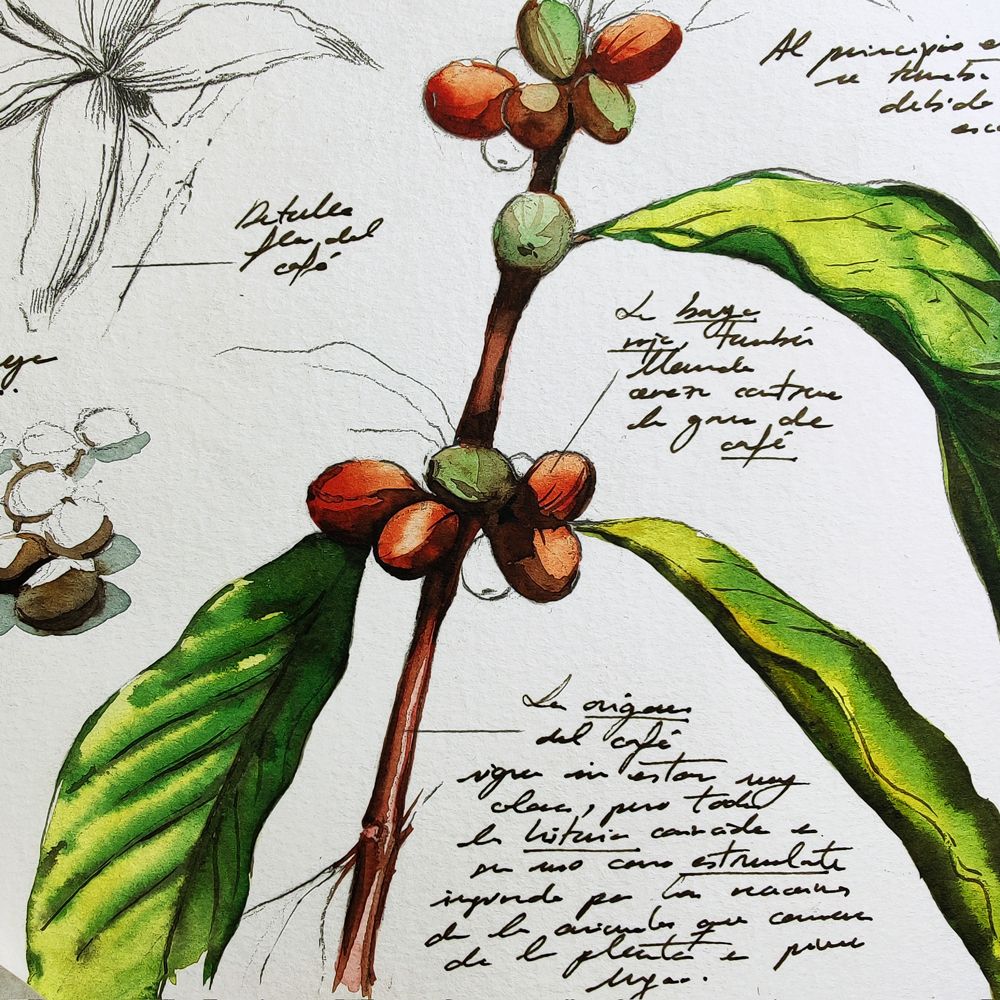 Al principio e
se
debido
esc
Detalle
flor del
café
La baya
roja, también
llamada
cereza contiene
la grana de
café
La origenes
del café
sigue sin estar muy
claro, pero toda
la historia conocida
su uso como estimulante
por las reacciones
de los animales que comieron
de la planta